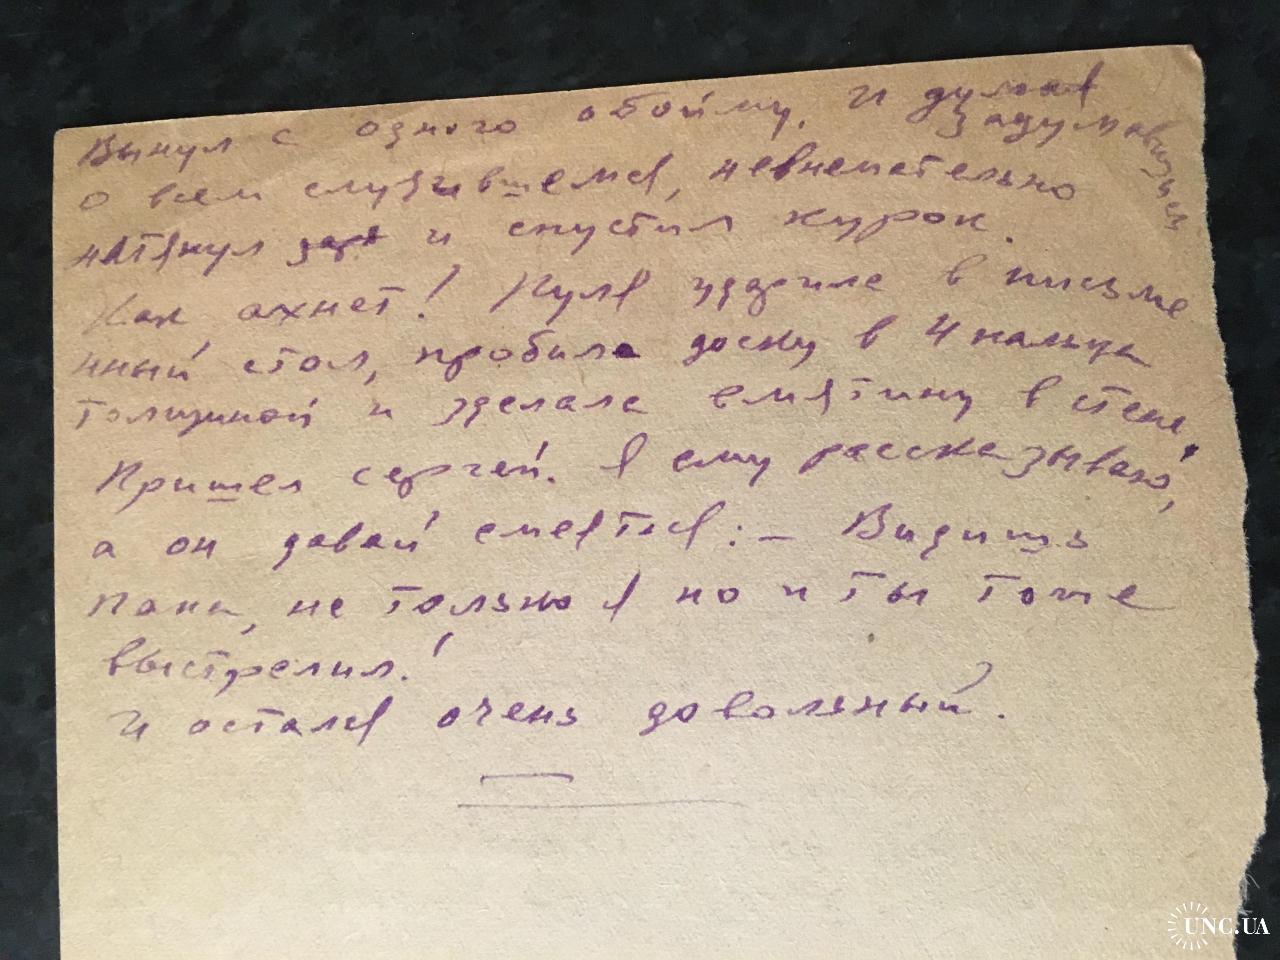 Вынул с одного обойму. И думая задумавшись
о всем случившемся, невнемательно
натянул и спустил курок.
Как ахнет! Пуля ударила в письме
нный стол, пробила доску в 4 пальца
толщиной и зделала вмятину в стене.
Пришел сергей. Я ему рассказываю,
а он давай смеятся: – Видишь
папа, не только я но и ты тоже
выстрелил!
И остался очень довольный.
UNC.UA